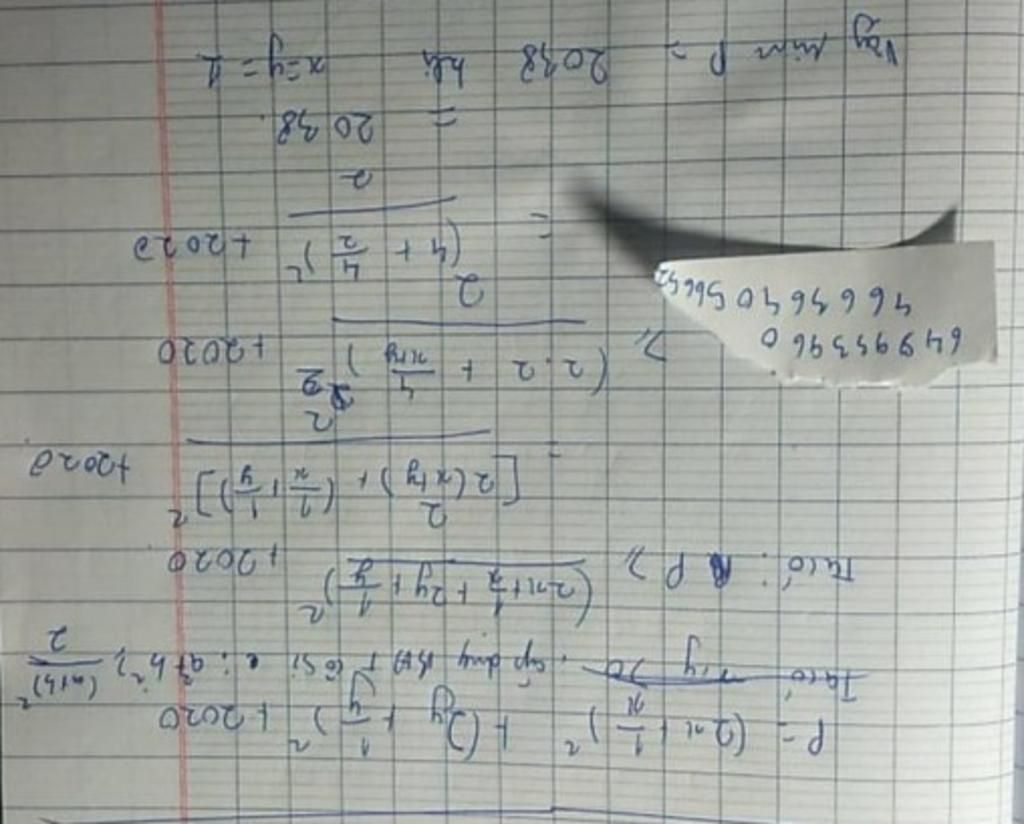 P = (2x + 1/x)² + (2y + 1/y)² + 2020
Ta có áp dụng BĐT Cosi : a² + b² ≥ (a+b)²/2
Ta có : P ≥ (2x + 1/x + 2y + 1/y)²/2 + 2020
= [2(x+y) + (1/x + 1/y)]²/2 + 2020
≥ (2.2 + 4/x+y)²/2 + 2020
= (4 + 4/2)²/2 + 2020
= 2038
Vậy min P = 2038 khi x=y=1
64993960
4663640 56632